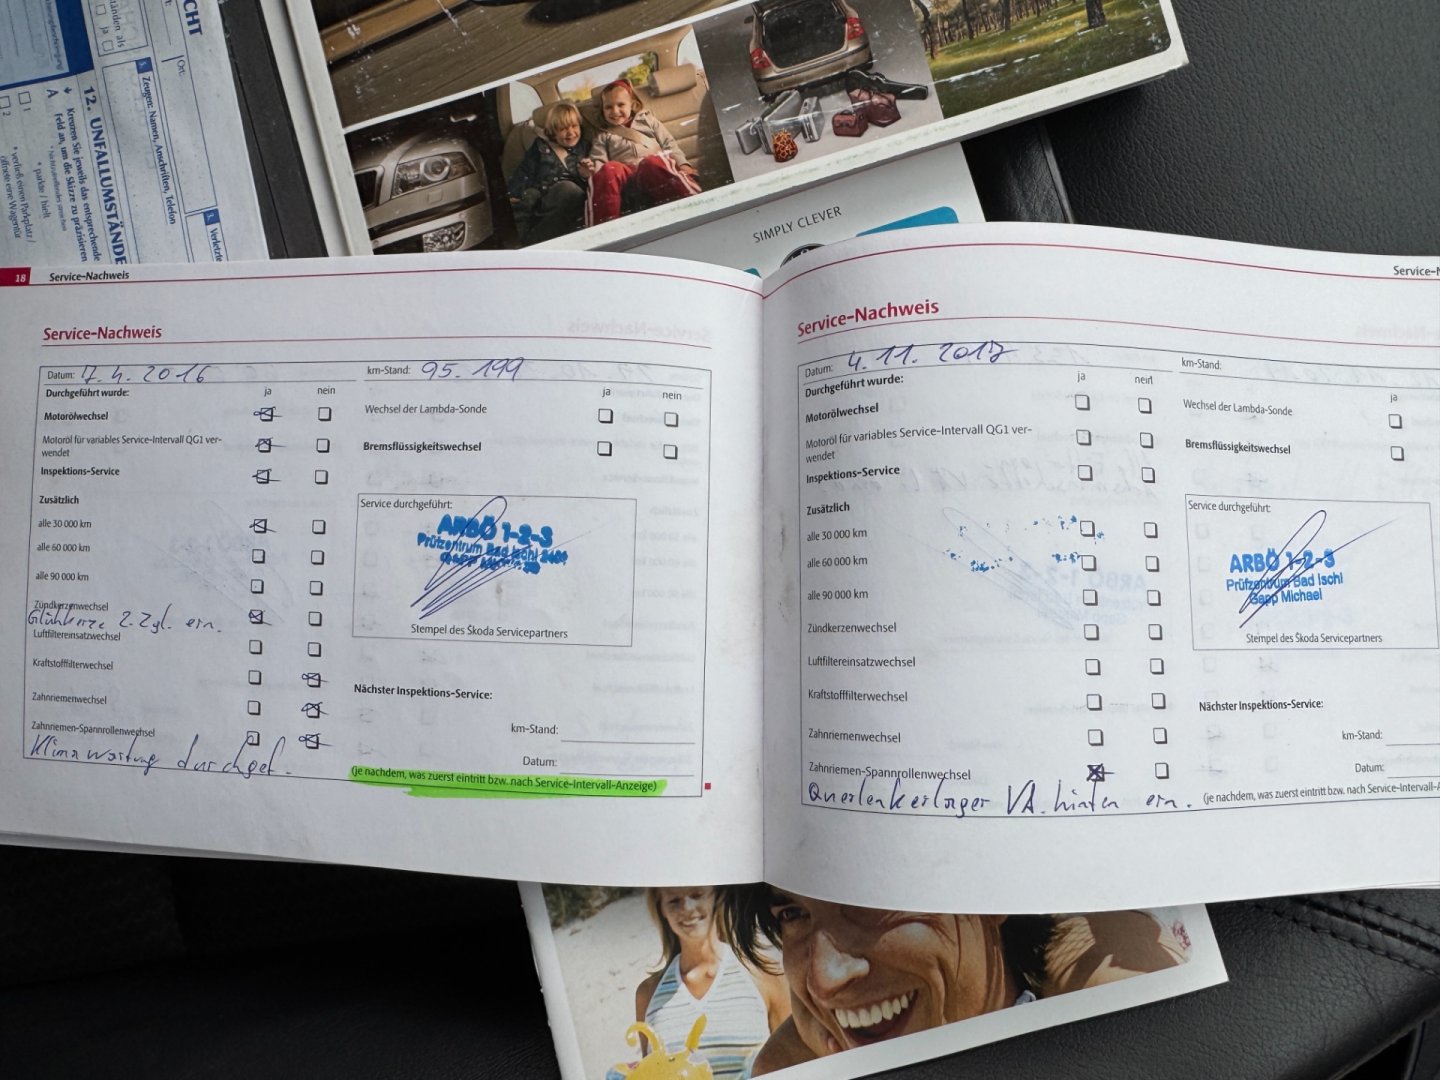 CHT
Ort:
ja
5. Zeugen: Namen, Anschriften, Telefon
3. Verletzte
12. UNFALLUMSTÄNDE
Kreuzen Sie jeweils das entsprechende
Feld an, um die Skizze zu präzisieren
A
* parkte / hielt
* verließ einen Parkplatz /
öffnete eine Wagentür
1
2
SIMPLY CLEVER
18 Service-Nachweis
Service-Nachweis
Datum: 7. 4. 2016
km-Stand: 95. 199
Durchgeführt wurde: ja nein
ja nein
Motorölwechsel
Wechsel der Lambda-Sonde
Motoröl für variables Service-Intervall QG1 ver-
wendet
Bremsflüssigkeitswechsel
Inspektions-Service
Zusätzlich
alle 30 000 km
alle 60 000 km
alle 90 000 km
Zündkerzenwechsel
Glühkerze 2. Zyl. ern.
Luftfiltereinsatzwechsel
Kraftstofffilterwechsel
Zahnriemenwechsel
Zahnriemen-Spannrollenwechsel
Klimawartung durchgef.
Service durchgeführt:
ARBÖ 1-2-3
Prüfzentrum Bad Ischl
Stempel des Škoda Servicepartners
Nächster Inspektions-Service:
km-Stand:
Datum:
(je nachdem, was zuerst eintritt bzw. nach Service-Intervall-Anzeige)
Service-N
Service-Nachweis
Datum: 4. 11. 2017
km-Stand:
Durchgeführt wurde: ja nein
ja
Motorölwechsel
Wechsel der Lambda-Sonde
Motoröl für variables Service-Intervall QG1 ver-
wendet
Bremsflüssigkeitswechsel
Inspektions-Service
Zusätzlich
alle 30 000 km
alle 60 000 km
alle 90 000 km
Zündkerzenwechsel
Luftfiltereinsatzwechsel
Kraftstofffilterwechsel
Zahnriemenwechsel
Zahnriemen-Spannrollenwechsel
Querlenkerlager VA. hinten ern.
Service durchgeführt:
ARBÖ 1-2-3
Prüfzentrum Bad Ischl
Gapp Michael
Stempel des Škoda Servicepartners
Nächster Inspektions-Service:
km-Stand:
Datum:
(je nachdem, was zuerst eintritt bzw. nach Service-Intervall-A